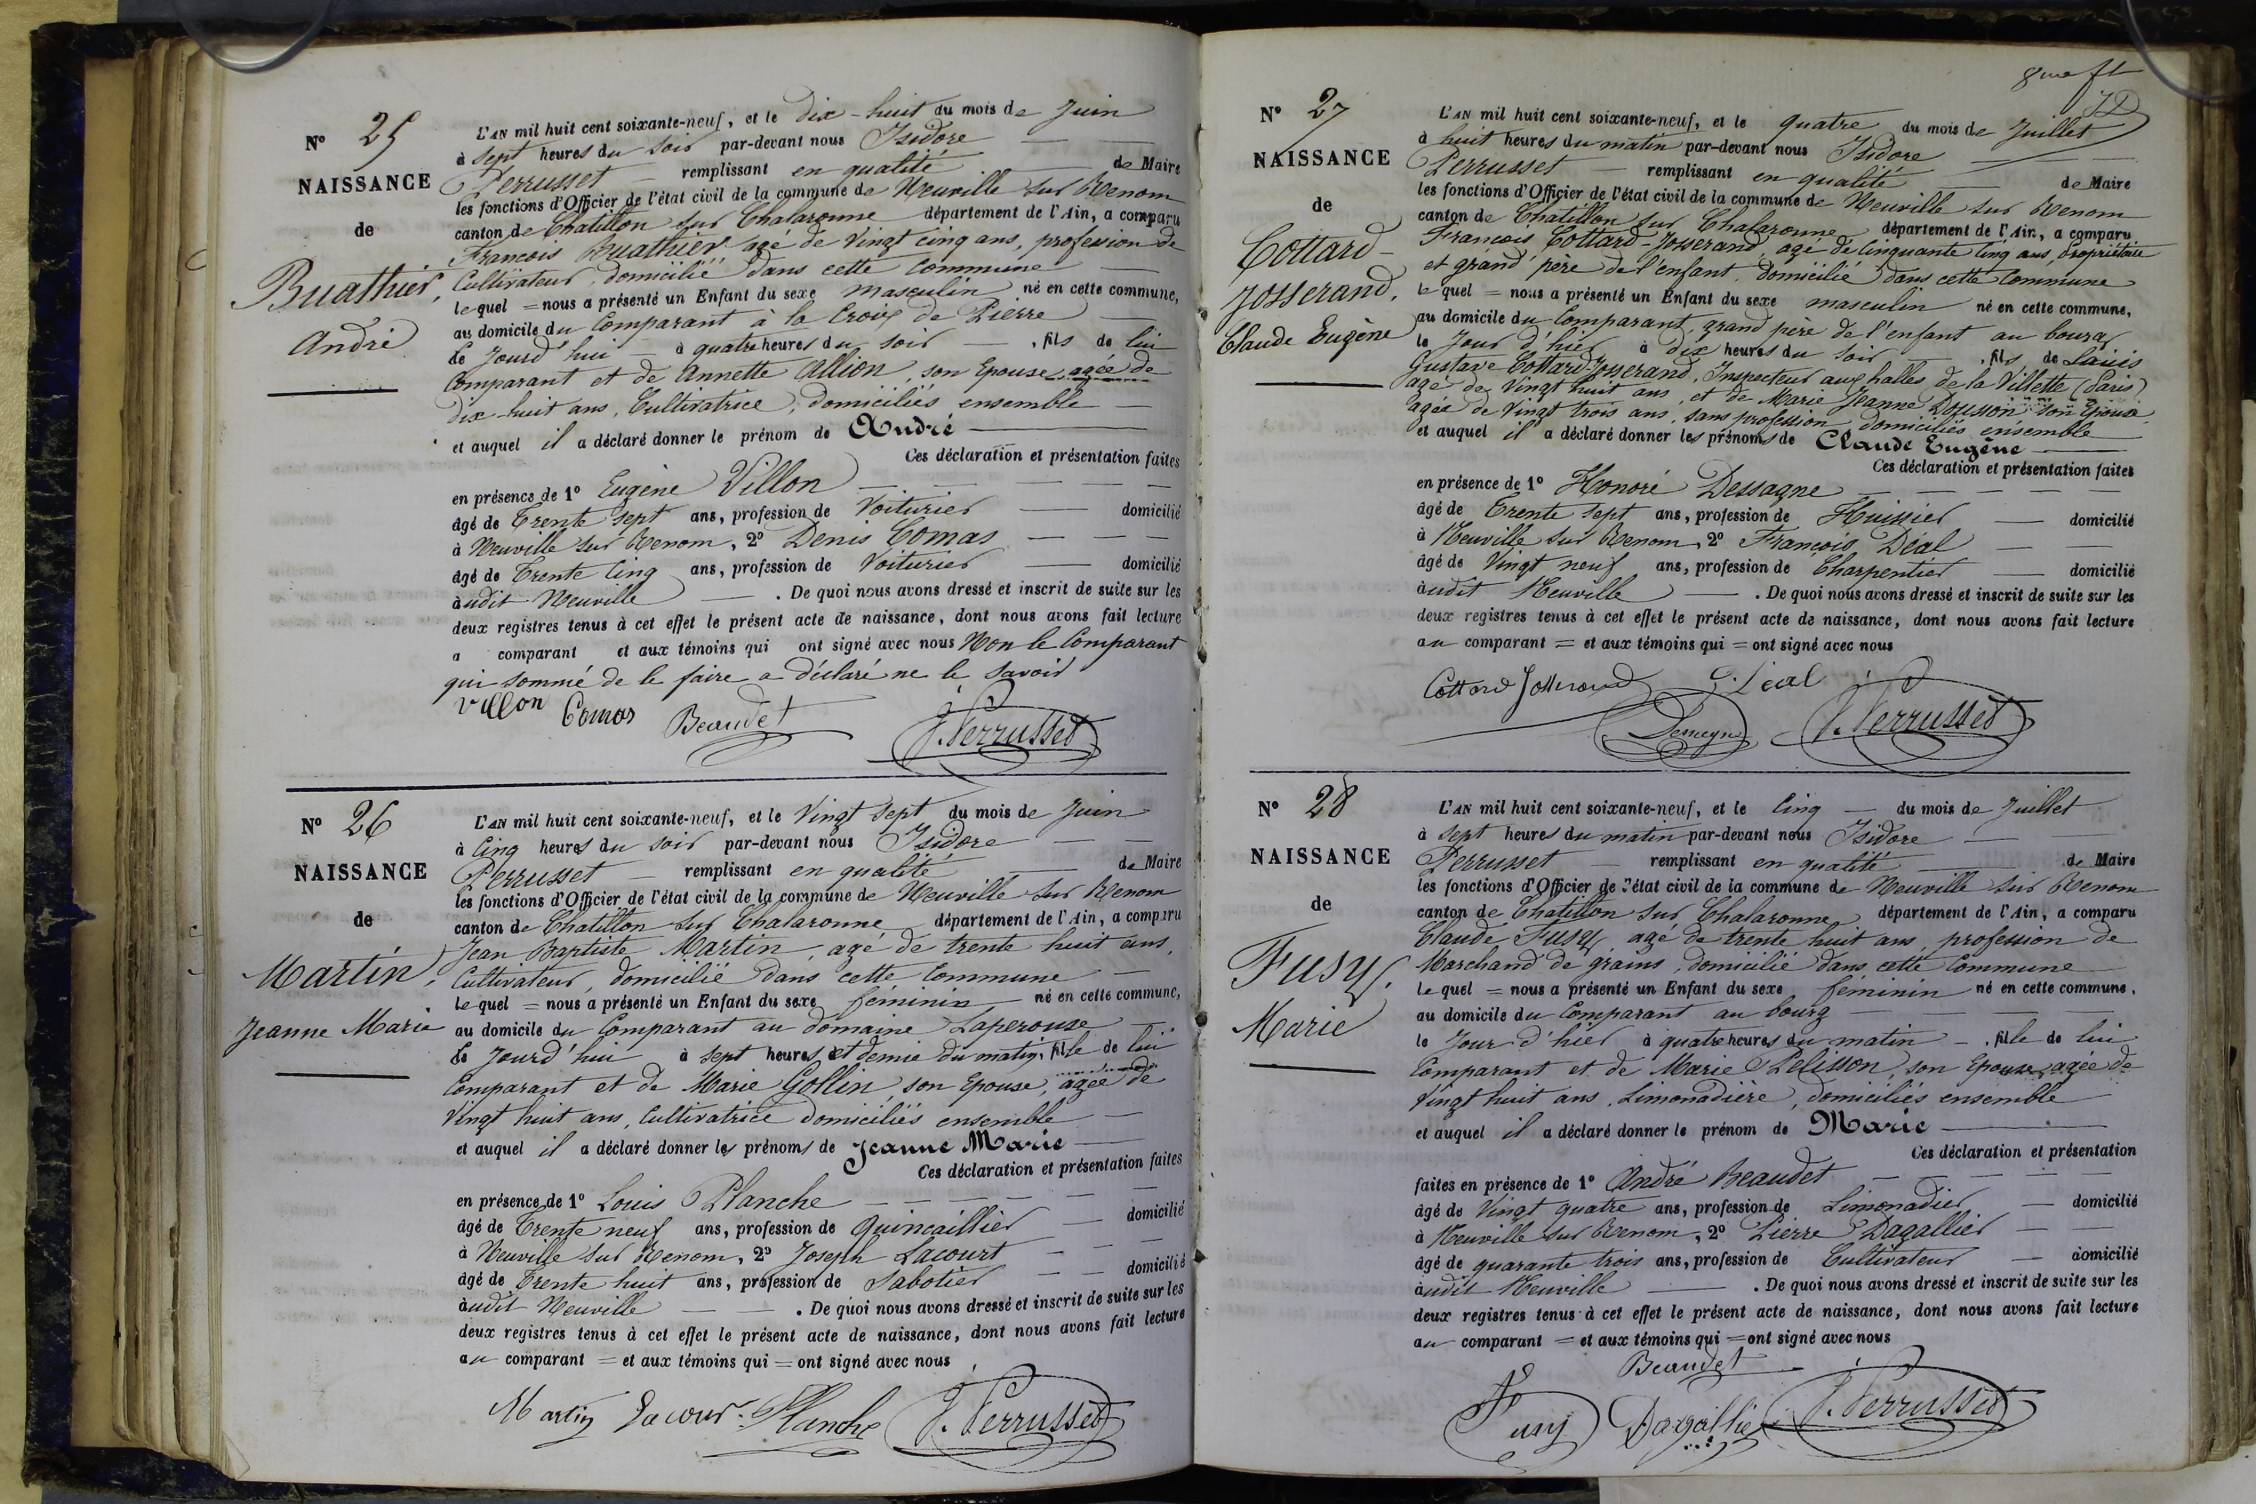 Nº 25
NAISSANCE
de
Buathier,
André
L'AN mil huit cent soixante-neuf, et le dix-huit du mois de Juin
à sept heures du soir par-devant nous Isidore
Perrusset remplissant en qualité de Maire
les fonctions d'Officier de l'état civil de la commune de Neuville sur Renom
canton de Chatillon sur Chalaronne département de l'Ain, a comparu
François Buathier agé de Vingt cinq ans, profession de
Cultivateur, domicilié dans cette commune
lequel = nous a présenté un Enfant du sexe masculin né en cette commune,
au domicile du Comparant à la Croix de Pierre
le Jourd'hui à quatre heures du soir, fils de lui
Comparant et de Annette Allion, son Epouse, agée de
dix-huit ans, Cultivatrice, domiciliés ensemble
et auquel il a déclaré donner le prénom de André
Ces déclaration et présentation faites
en présence de 1º Eugène Villon
âgé de Trente sept ans, profession de Voiturier domicilié
à Neuville sur Renom, 2º Denis Comas
âgé de Trente Cinq ans, profession de Voiturier domicilié
àudit Neuville. De quoi nous avons dressé et inscrit de suite sur les
deux registres tenus à cet effet le présent acte de naissance, dont nous avons fait lecture
a comparant et aux témoins qui ont signé avec nous Non le Comparant
qui sommé de le faire a déclaré ne le savoir
Villon Comas Beaudet J. Perrusset
Nº 26
NAISSANCE
de
Martin,
Jeanne Marie
L'AN mil huit cent soixante-neuf, et le Vingt sept du mois de Juin
à Cinq heures du soir par-devant nous Isidore
Perrusset remplissant en qualité de Maire
les fonctions d'Officier de l'état civil de la commune de Neuville sur Renom
canton de Chatillon sur Chalaronne département de l'Ain, a comparu
Jean Baptiste Martin, agé de trente huit ans,
Cultivateur, domicilié dans cette Commune
lequel = nous a présenté un Enfant du sexe féminin né en cette commune,
au domicile du Comparant au domaine Laperouse
le Jourd'hui à sept heures et demie du matin, fille de lui
Comparant et de Marie Gollin, son Epouse, agée de
Vingt huit ans, Cultivatrice domiciliés ensemble
et auquel il a déclaré donner les prénoms de Jeanne Marie
Ces déclaration et présentation faites
en présence de 1º Louis Planche
âgé de Trente neuf ans, profession de Quincaillier domicilié
à Neuville sur Renom, 2º Joseph Lacourt
âgé de Trente huit ans, profession de Sabotier domicilié
àudit Neuville. De quoi nous avons dressé et inscrit de suite sur les
deux registres tenus à cet effet le présent acte de naissance, dont nous avons fait lecture
au comparant = et aux témoins qui = ont signé avec nous
Martin Lacour Planche J. Perrusset
8me ft
Nº 27
NAISSANCE
de
Cottard-
Josserand,
Claude Eugène
L'AN mil huit cent soixante-neuf, et le quatre du mois de Juillet
à huit heures du matin par-devant nous Isidore
Perrusset remplissant en qualité de Maire
les fonctions d'Officier de l'état civil de la commune de Neuville sur Renom
canton de Chatillon sur Chalaronne département de l'Ain, a comparu
François Cottard-Josserand, agé de Cinquante Cinq ans, Propriétaire
et grand père de l'enfant, domicilié dans cette Commune
lequel = nous a présenté un Enfant du sexe masculin né en cette commune,
au domicile du Comparant, grand père de l'enfant au bourg
le Jour d'hier à dix heures du soir, fils de Louis
Gustave Cottard-Josserand, Inspecteur aux halles de la Villette (Paris)
agé de Vingt huit ans, et de Marie Jeanne Dousson son Epouse
agée de Vingt trois ans, sans profession, domiciliés ensemble
et auquel il a déclaré donner les prénoms de Claude Eugène
Ces déclaration et présentation faites
en présence de 1º Honoré Dessagne
âgé de Trente sept ans, profession de Huissier domicilié
à Neuville sur Renom, 2º François Déal
âgé de Vingt neuf ans, profession de Charpentier domicilié
àudit Neuville. De quoi nous avons dressé et inscrit de suite sur les
deux registres tenus à cet effet le présent acte de naissance, dont nous avons fait lecture
au comparant = et aux témoins qui = ont signé avec nous
Cottard Josserand Déal
J. Perrusset
Nº 28
NAISSANCE
de
Fusy,
Marie
L'AN mil huit cent soixante-neuf, et le Cinq du mois de Juillet
à sept heures du matin par-devant nous Isidore
Perrusset remplissant en qualité de Maire
les fonctions d'Officier de l'état civil de la commune de Neuville sur Renom
canton de Chatillon sur Chalaronne département de l'Ain, a comparu
Claude Fusy, agé de trente huit ans, profession de
Marchand de grains, domicilié dans cette Commune
lequel = nous a présenté un Enfant du sexe féminin né en cette commune,
au domicile du Comparant au bourg
le Jour d'hier à quatre heures du matin, fille de lui
Comparant et de Marie Pelisson, son Epouse, agée de
Vingt huit ans, Limonadière, domiciliés ensemble
et auquel il a déclaré donner le prénom de Marie
Ces déclaration et présentation
faites en présence de 1º André Beaudet
âgé de Vingt quatre ans, profession de Limonadier domicilié
à Neuville sur Renom, 2º Pierre Dagallier
âgé de quarante trois ans, profession de Cultivateur domicilié
àudit Neuville. De quoi nous avons dressé et inscrit de suite sur les
deux registres tenus à cet effet le présent acte de naissance, dont nous avons fait lecture
au comparant = et aux témoins qui = ont signé avec nous
Beaudet
Fusy Dagallier J. Perrusset